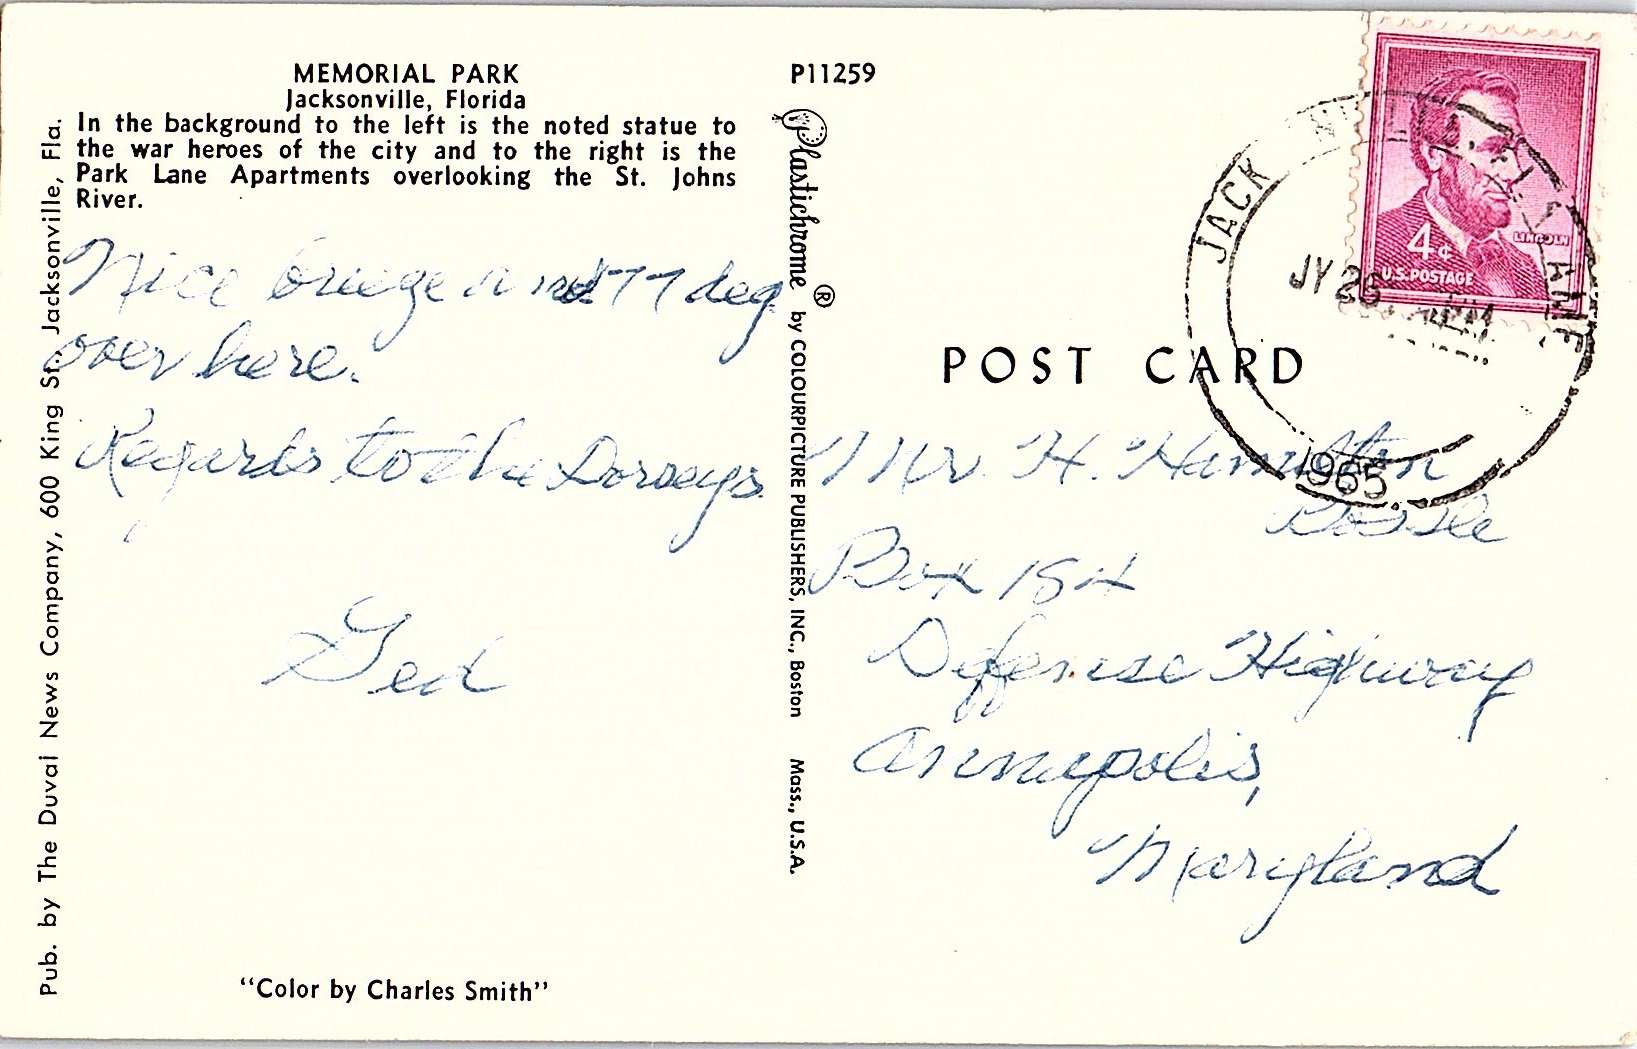 MEMORIAL PARK
Jacksonville, Florida
In the background to the left is the noted statue to
the war heroes of the city and to the right is the
Park Lane Apartments overlooking the St. Johns
River.
Nice breeze and 77 deg
over here.
Regards to the Dorseys.
Ged
"Color by Charles Smith"
Pub. by The Duval News Company, 600 King St., Jacksonville, Fla.
P11259
Plastichrome ® by COLOURPICTURE PUBLISHERS, INC., Boston Mass., U.S.A.
POST CARD
LINCOLN
4¢
U.S. POSTAGE
JACK
JY 26
1965
Mr. H. Hamilton
Box 184
Defense Highway
Annapolis,
Maryland